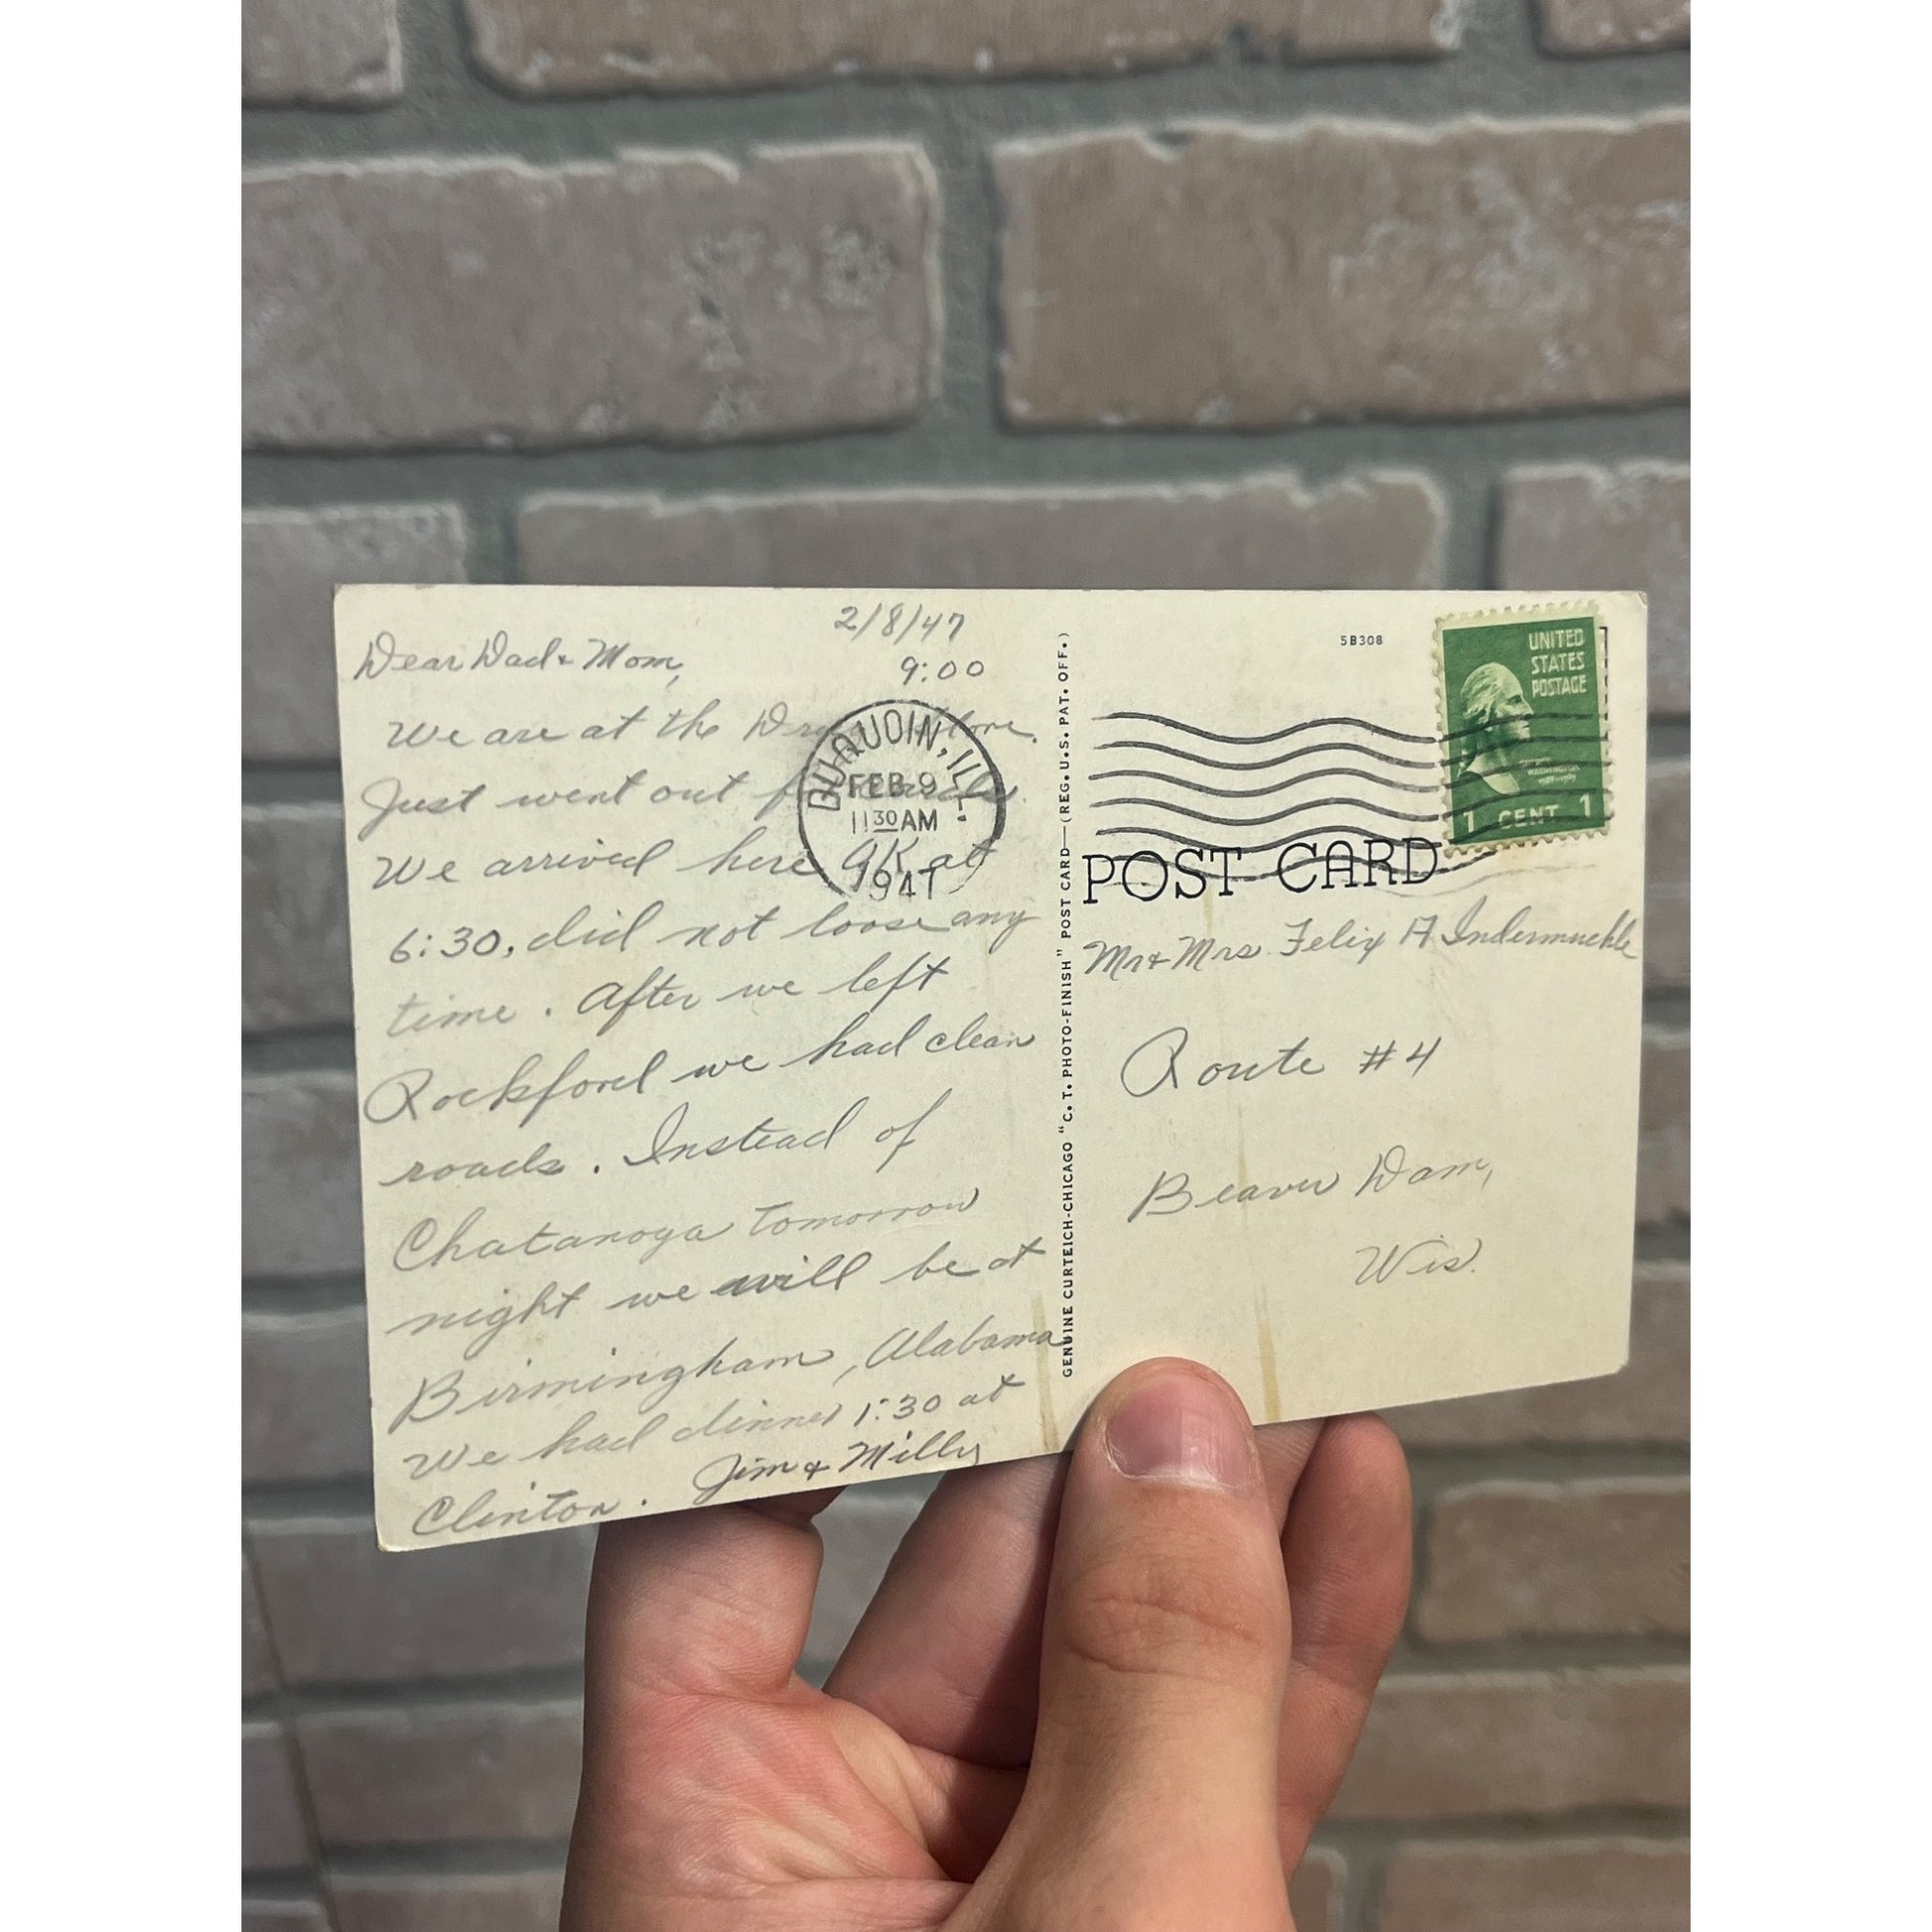 2/8/47
Dear Dad & Mom,
9:00
We are at the Drug Store.
Just went out for cards.
We arrived here OK at
6:30, did not loose any
time. After we left
Rockford we had clean
roads. Instead of
Chatanoga tomorrow
night we will be at
Birmingham, Alabama
We had dinner 1:30 at
Clinton. Jim & Milly
DUQUOIN, ILL.
FEB 9
11 30 AM
1947
GENUINE CURTEICH-CHICAGO "C. T. PHOTO-FINISH" POST CARD—(REG. U.S. PAT. OFF.)
5B308
UNITED
STATES
POSTAGE
WASHINGTON
1 CENT 1
POST CARD
Mr & Mrs Felix A Indermuehle
Route #4
Beaver Dam,
Wis.